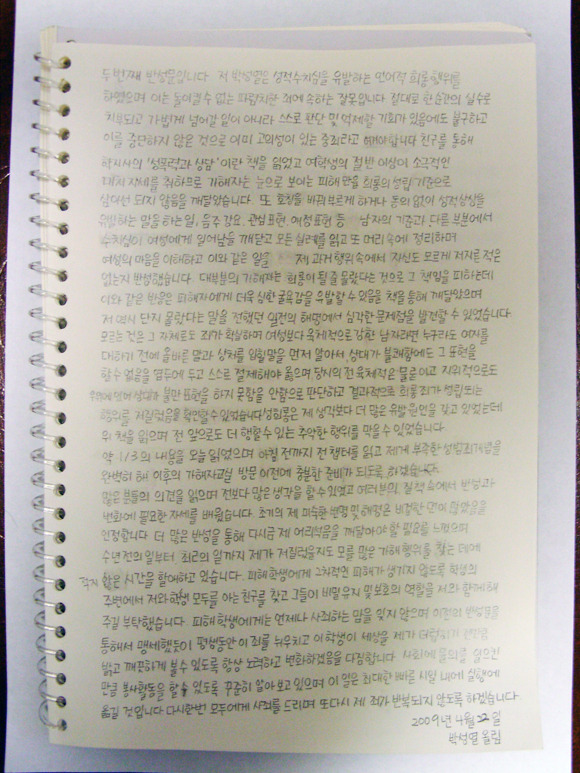 두번째 반성문입니다. 저 박성열은 성적수치심을 유발하는 언어적 희롱행위를
하였으며 이는 돌이킬 수 없는 파렴치한 죄에 속하는 잘못입니다. 절대로 한순간의 실수로
치부되고 가볍게 넘어갈 일이 아니라 스스로 판단 및 억제할 기회가 있음에도 불구하고
이를 중단하지 않은 것으로 이미 고의성이 있는 중죄라고 여깁니다 친구를 통해
'성폭력과 상담' 이란 책을 읽었고 여학생의 절반 이상이 소극적인
대처자세를 취하므로 가해자는 눈으로 보이는 피해만을 희롱의 성립 기준으로
삼아선 되지 않음을 깨달았습니다. 또 호칭을 바꿔부르게 하거나 동의 없이 성적상상을
유발하는 말을 하는 일, 음주 강요, 관심표현, 애정표현 등 남자의 기준과 다른 부분에서
수치심이 여성에게 일어남을 깨닫고 모든 실례를 읽고 또 머리속에 정리하며
여성의 마음을 이해하고 이와 같은 일을 제 과거 행위 속에서 자신도 모르게 저지른 적은
없는지 반성했습니다. 대부분의 가해자는 희롱이 될 줄 몰랐다는 것으로 그 책임을 피하는데
이와 같은 반응은 피해자에게 더욱 심한 굴욕감을 유발할 수 있음을 책을 통해 깨달았으며
저 역시 단지 몰랐다는 말을 전했던 일전의 해명에서 심각한 문제점을 발견할 수 있었습니다.
모르는 것은 그 자체로도 죄가 확실하며 여성보다 육체적으로 강한 남자라면 누구라도 여자를
대하기 전에 올바른 말과 상처를 입힐말을 먼저 알아서, 상대가 불쾌함에도 그 표현을
할 수 없음을 염두에 두고 스스로 절제해야 옳으며 당시의 전 육체적은 물론이고 지위적으로도
우위에 있어 상대가 불만 표현을 하지 못함을 안함으로 판단하고 결과적으로 희롱죄가 성립되는
행위를 저질렀음을 확인할 수 있었습니다 성희롱은 제 생각보다 더 많은 유발 원인을 갖고 있었는데
위 책을 읽으며 전 앞으로도 더 행할 수 있는 추악한 행위를 막을 수 있었습니다.
약 1/3의 내용을 오늘 읽었으며 아침 전까지 전 챕터를 읽고 제게 부족한 성범죄개념을
완벽히 해 이후의 가해자교실 방문 이전에 충분한 준비가 되도록 하겠습니다.
많은 분들의 의견을 읽으며 전보다 많은 생각을 할 수 있었고 여러분의 질책 속에서 반성과
변화에 필요한 자세를 배웠습니다. 초기의 제 미숙한 변명 및 해명은 비겁한 면이 많았음을
인정합니다. 더 많은 반성을 통해 다시금 제 어리석음을 깨달아야 할 필요를 느꼈으며
수년 전의 일부터 최근의 일까지 제가 저질렀을지도 모를 많은 가해행위를 찾는 데에
적지 않은 시간을 할애하고 있습니다. 피해학생에게 2차적인 피해가 생기지 않도록 학생의
주변에서 저와 학생 모두를 아는 친구를 찾고 그들이 비밀유지 및 보호의 역할을 저와 함께 해
주길 부탁했습니다. 피해 학생에게는 언제나 사죄하는 맘을 잊지 않으며 이전의 반성문을
통해서 맹세했듯이 평생동안 이 죄를 뉘우치고 이 학생이 세상을 제가 더럽히기 전만큼
밝고 깨끗하게 볼 수 있도록 항상 노력하고 변화하겠음을 다짐합니다. 사회에 물의를 일으킨
만큼 봉사활동을 할 수 있도록 꾸준히 알아보고 있으며 이 일은 최대한 빠른 시일 내에 실행에
옮길 것입니다 다시한번 모두에게 사죄를 드리며 또다시 제 죄가 반복되지 않도록 하겠습니다.
2009년 4월 22일
박성열 올림